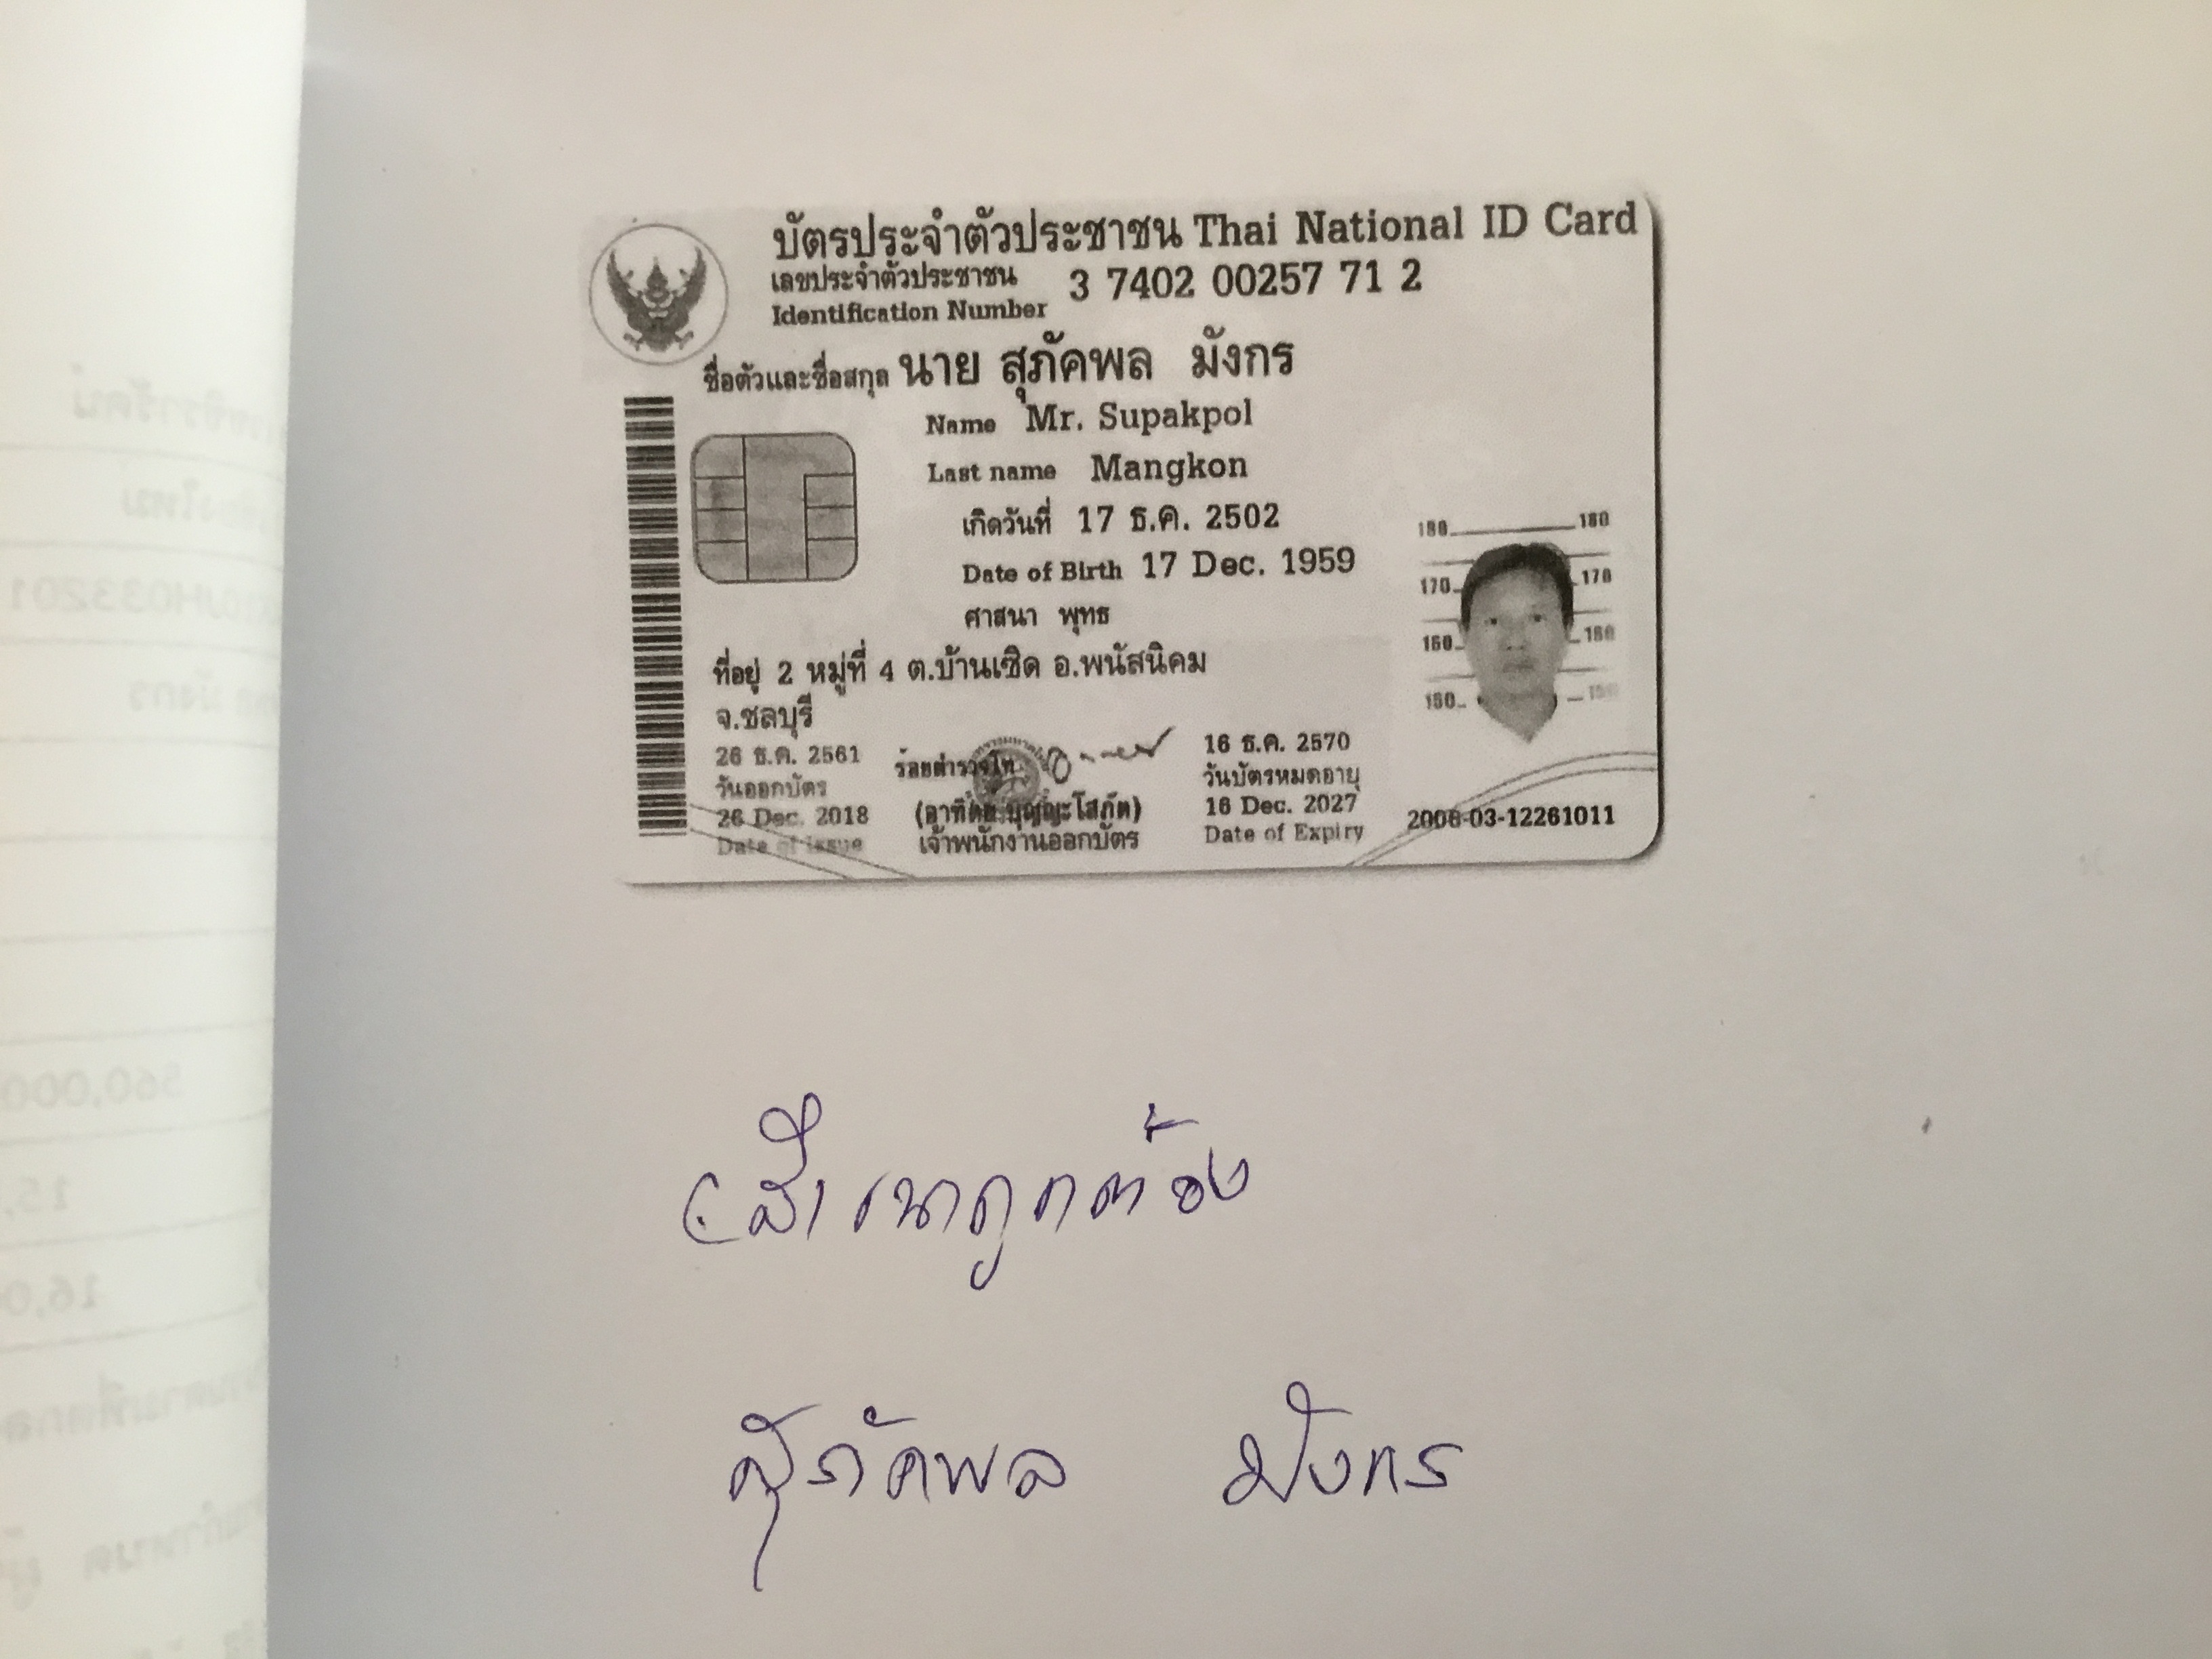 บัตรประจำตัวประชาชน Thai National ID Card
เลขประจำตัวประชาชน
Identification Number 3 7402 00257 71 2
ชื่อตัวและชื่อสกุล นาย สุภัคพล มังกร
Name Mr. Supakpol
Last name Mangkon
เกิดวันที่ 17 ธ.ค. 2502
Date of Birth 17 Dec. 1959
ศาสนา พุทธ
180 180
170 170
160 160
150 150
ที่อยู่ 2 หมู่ที่ 4 ต.บ้านเซิด อ.พนัสนิคม
จ.ชลบุรี
26 ธ.ค. 2561
วันออกบัตร
26 Dec. 2018
Date of Issue
ร้อยตำรวจโท
บุญญะโสภัต)
เจ้าพนักงานออกบัตร
16 ธ.ค. 2570
วันบัตรหมดอายุ
16 Dec. 2027
Date of Expiry
2008-03-12261011
สำเนาถูกต้อง
สุภัคพล มังกร